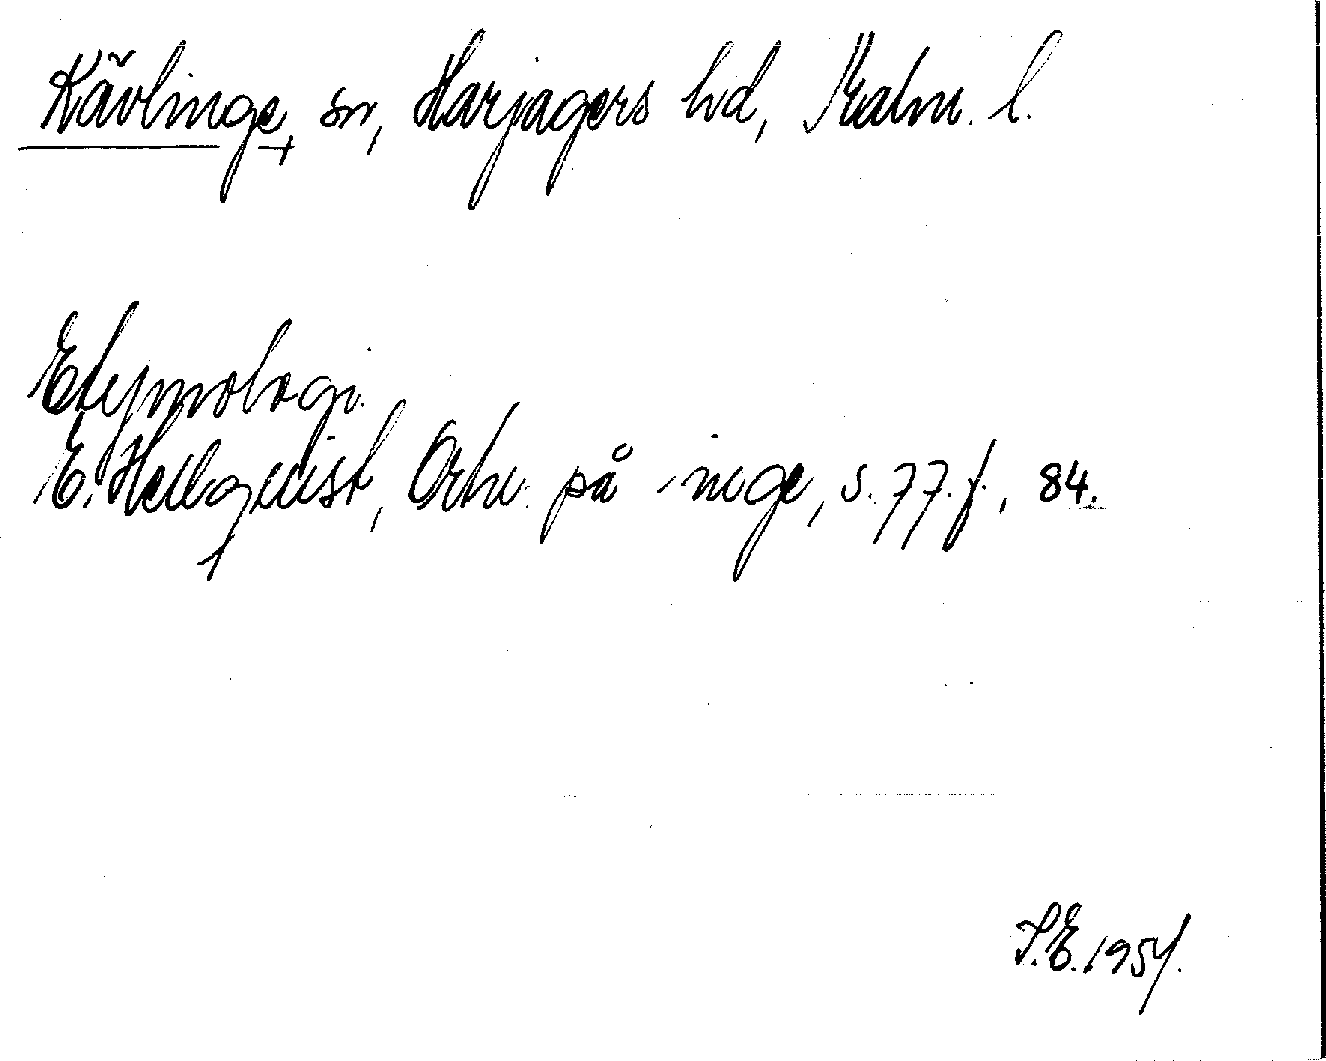 Kävlinge, sn, Harjagers hd, Malm. l.
Etymologi.
E. Hellquist, Ortn. på -inge, s. 77 f., 84.
S.E. 1954.